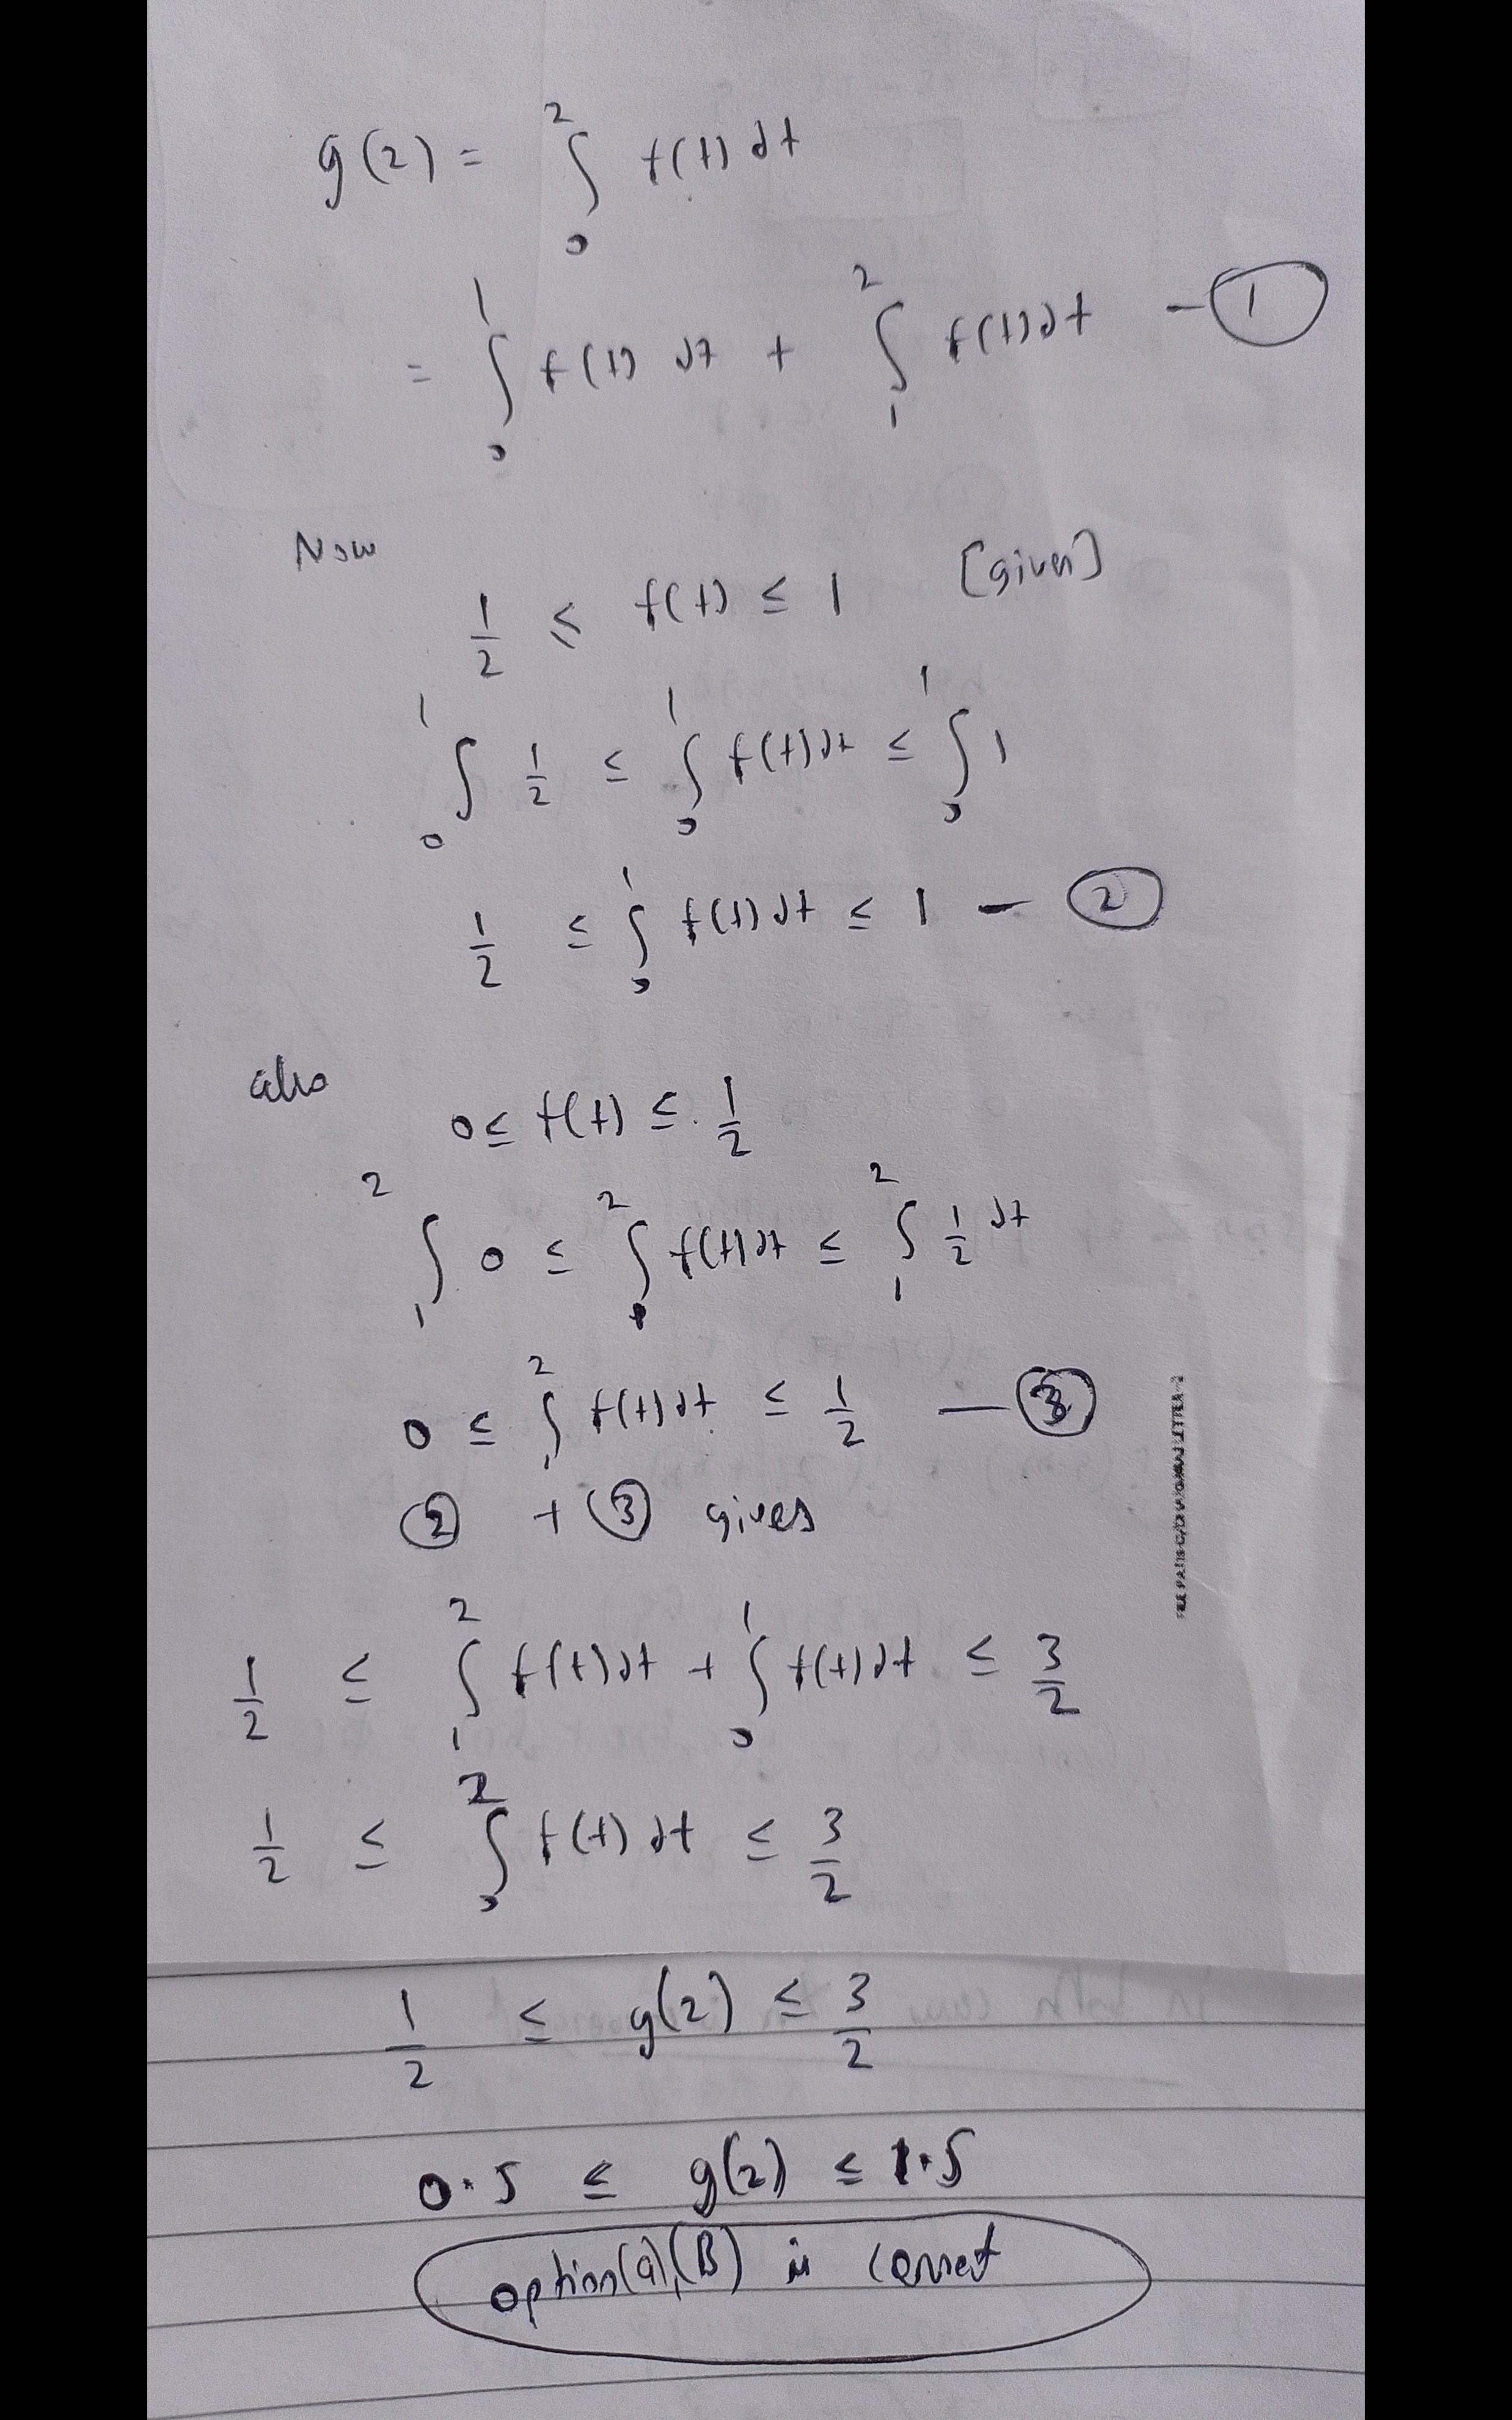 g(2) = ∫₀² f(t) dt
= ∫₀¹ f(t) dt + ∫₁² f(t) dt — ①
Now
1/2 ≤ f(t) ≤ 1 [given]
∫₀¹ 1/2 ≤ ∫₀¹ f(t) dt ≤ ∫₀¹ 1
1/2 ≤ ∫₀¹ f(t) dt ≤ 1 — ②
also
0 ≤ f(t) ≤ 1/2
∫₁² 0 ≤ ∫₁² f(t) dt ≤ ∫₁² 1/2 dt
0 ≤ ∫₁² f(t) dt ≤ 1/2 — ③
② + ③ gives
1/2 ≤ ∫₁² f(t) dt + ∫₀¹ f(t) dt ≤ 3/2
1/2 ≤ ∫₀² f(t) dt ≤ 3/2
1/2 ≤ g(2) ≤ 3/2
0.5 ≤ g(2) ≤ 1.5
option(a),(B) is correct